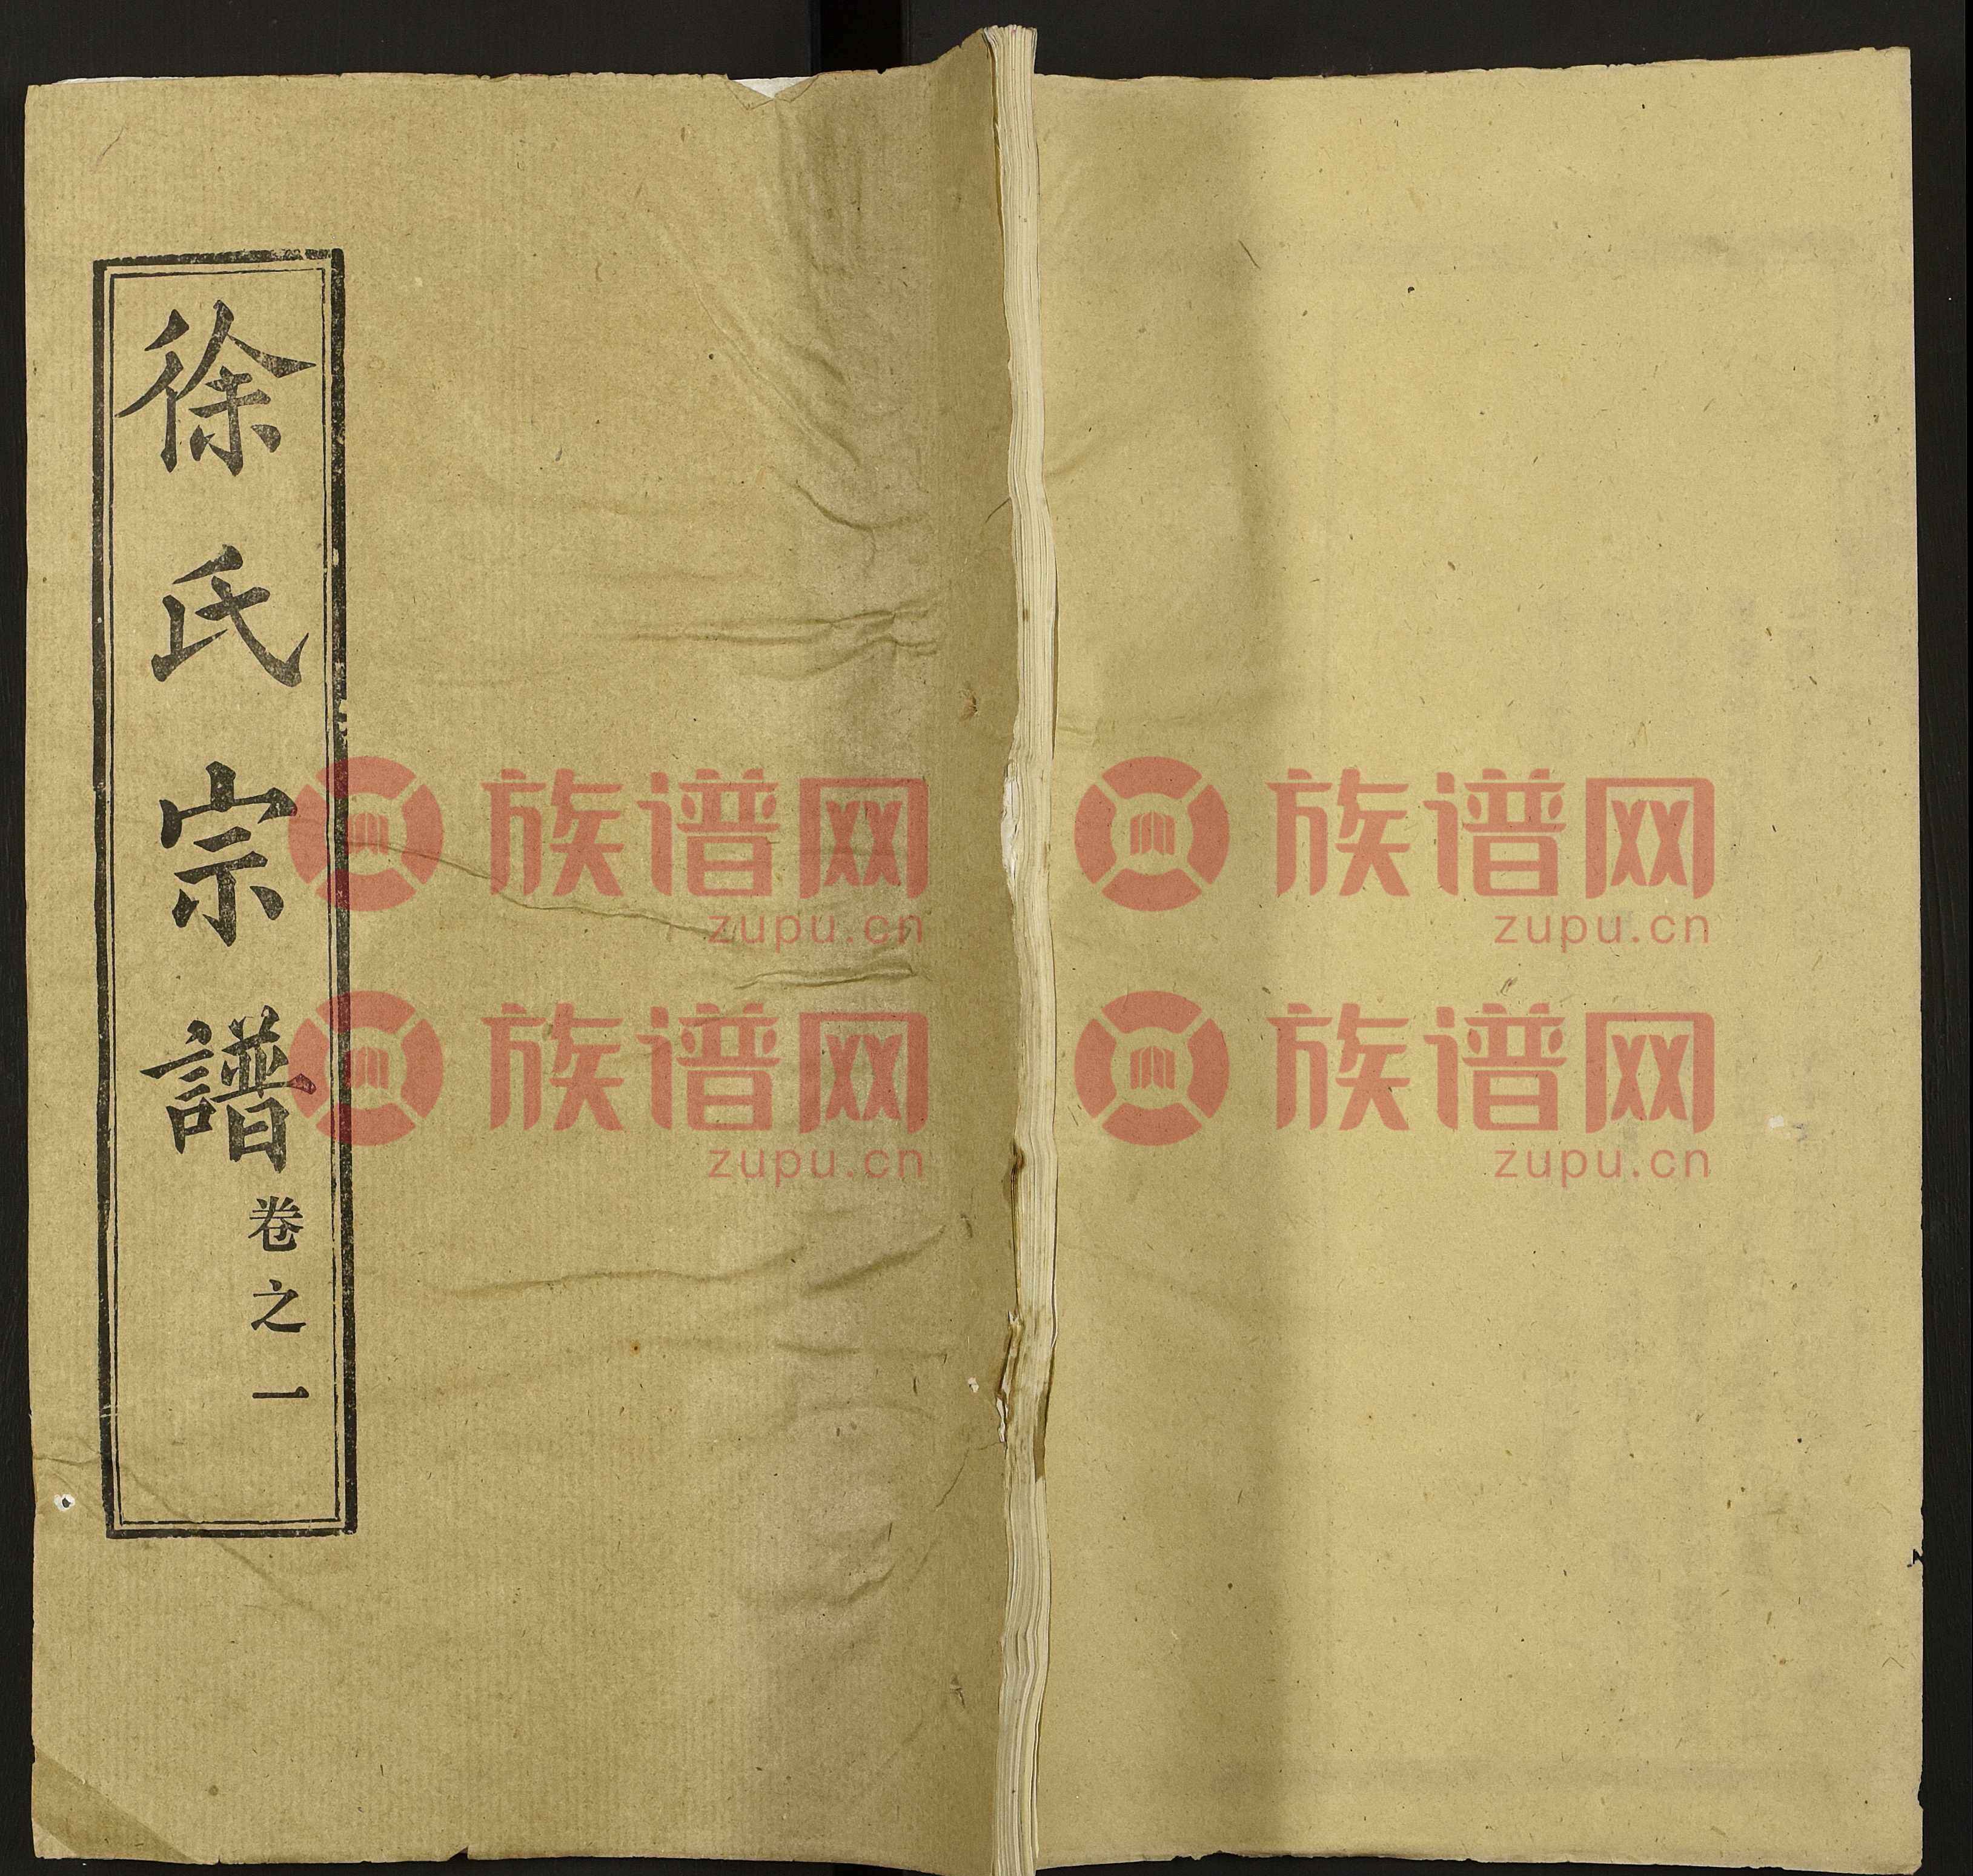 徐氏宗譜
卷之一
族谱网
zupu.cn
族谱网
zupu.cn
族谱网
zupu.cn
族谱网
zupu.cn